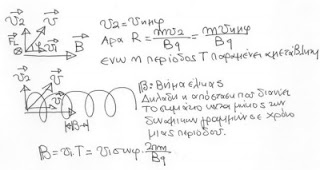 υ₂ υ υ₂ = υημφ
Άρα R = mυ₂/Bq = mυημφ/Bq
F_L φ υ₁ B
ενώ η περίοδος T παραμένει αμετάβλητη
υ₂ υ β: Βήμα έλικας
Δηλαδή η απόσταση που διανύει
το σωματίο κατά μήκος των
δυναμικών γραμμών σε χρόνο
β μιας περιόδου.
β = υ₁T = υσυνφ · 2πm/Bq